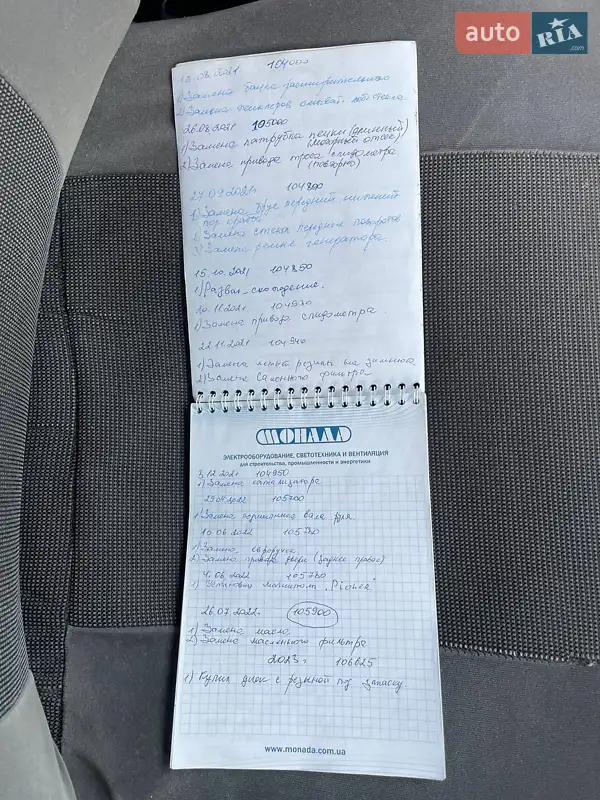 auto RIA .com
13.08.2021 104000
1) Замена бачка расширительного
2) Замена жиклеров омыват. лоб. стекла
26.08.2021 105000
1) Замена патрубка печки (длинный)
(моторный отсек)
2) Замена привода троса спидометра
(повторно)
27.09.2021г 104800
1) Замена брус передний нижний
под
2) Замена стекла передних поворотов
3) Замена ремня генератора.
15.10.2021 104850
1) Развал-схождение.
20.11.2021 104930
1) Замена привода спидометра.
22.11.2021 104940
1) Замена летн. резины на зимнюю
2) Замена салонного фильтра
МОНАДА
ЭЛЕКТРООБОРУДОВАНИЕ, СВЕТОТЕХНИКА И ВЕНТИЛЯЦИЯ
для строительства, промышленности и энергетики
3.12.2021 104950
1) Замена катализатора
25.04.2022 105700
1) Замена вала
10.06.2022 105750
1) Замена евроручек
2) Замена двери (заднее правое)
4.06.2022 105780
1) Установка магнитолы "Pioner"
26.07.2022г. 105900
1) Замена масла
2) Замена масленного фильтра
2023г 106625
1) Купил диск с резиной на запаску.
www.monada.com.ua